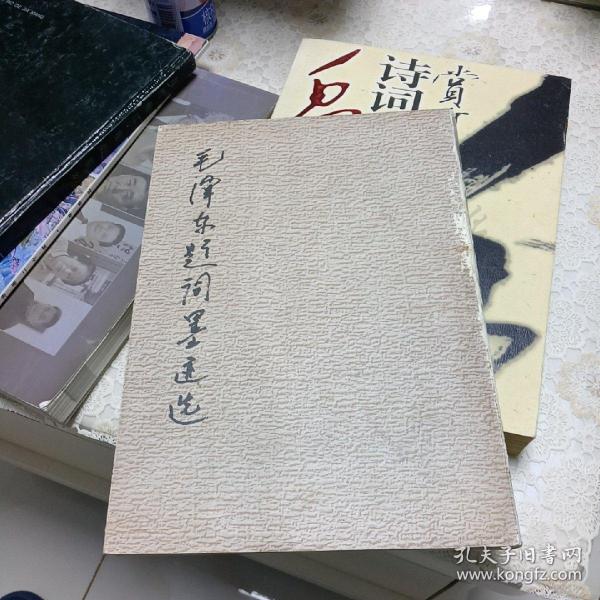 毛泽东题词墨迹选
诗词
赏
孔夫子旧书网
www.kongfz.com